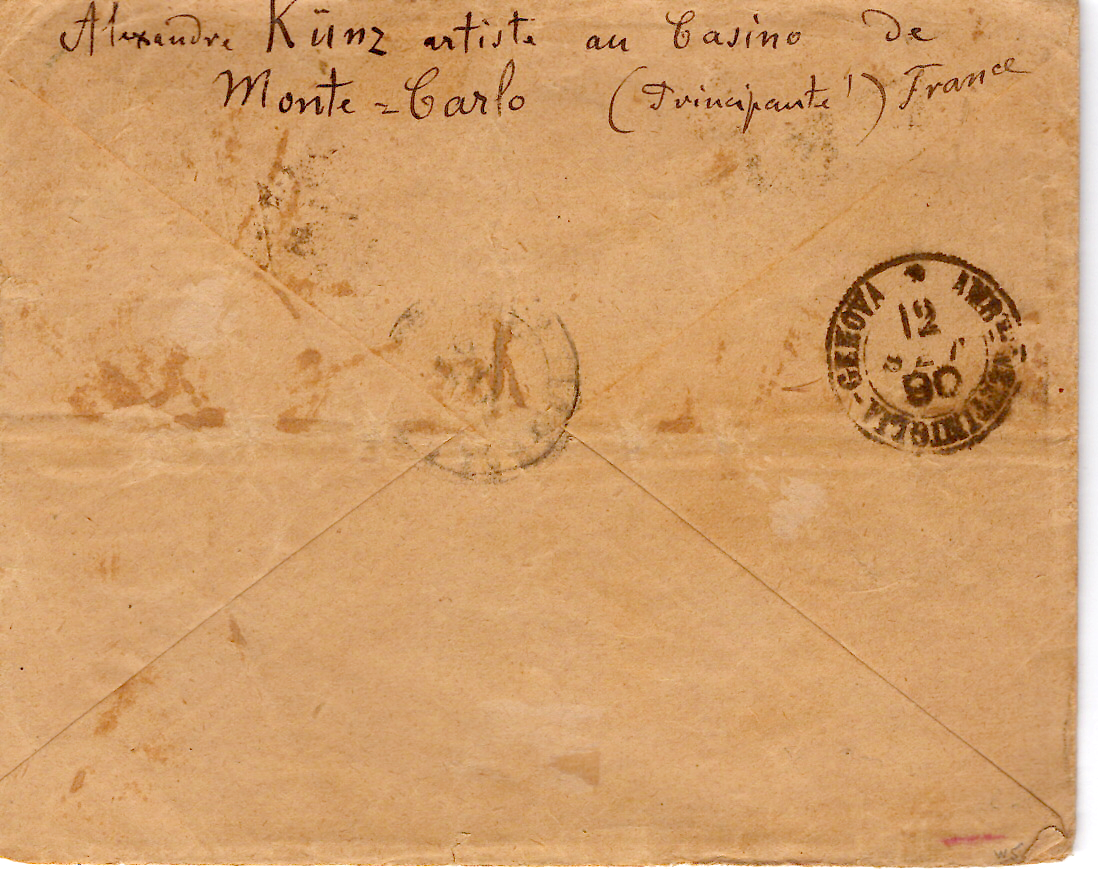 Alexandre Künz artiste au Casino de
Monte=Carlo (Principauté) France
AMB.E VENTIMIGLIA-GENOVA
12
SET
90
W5